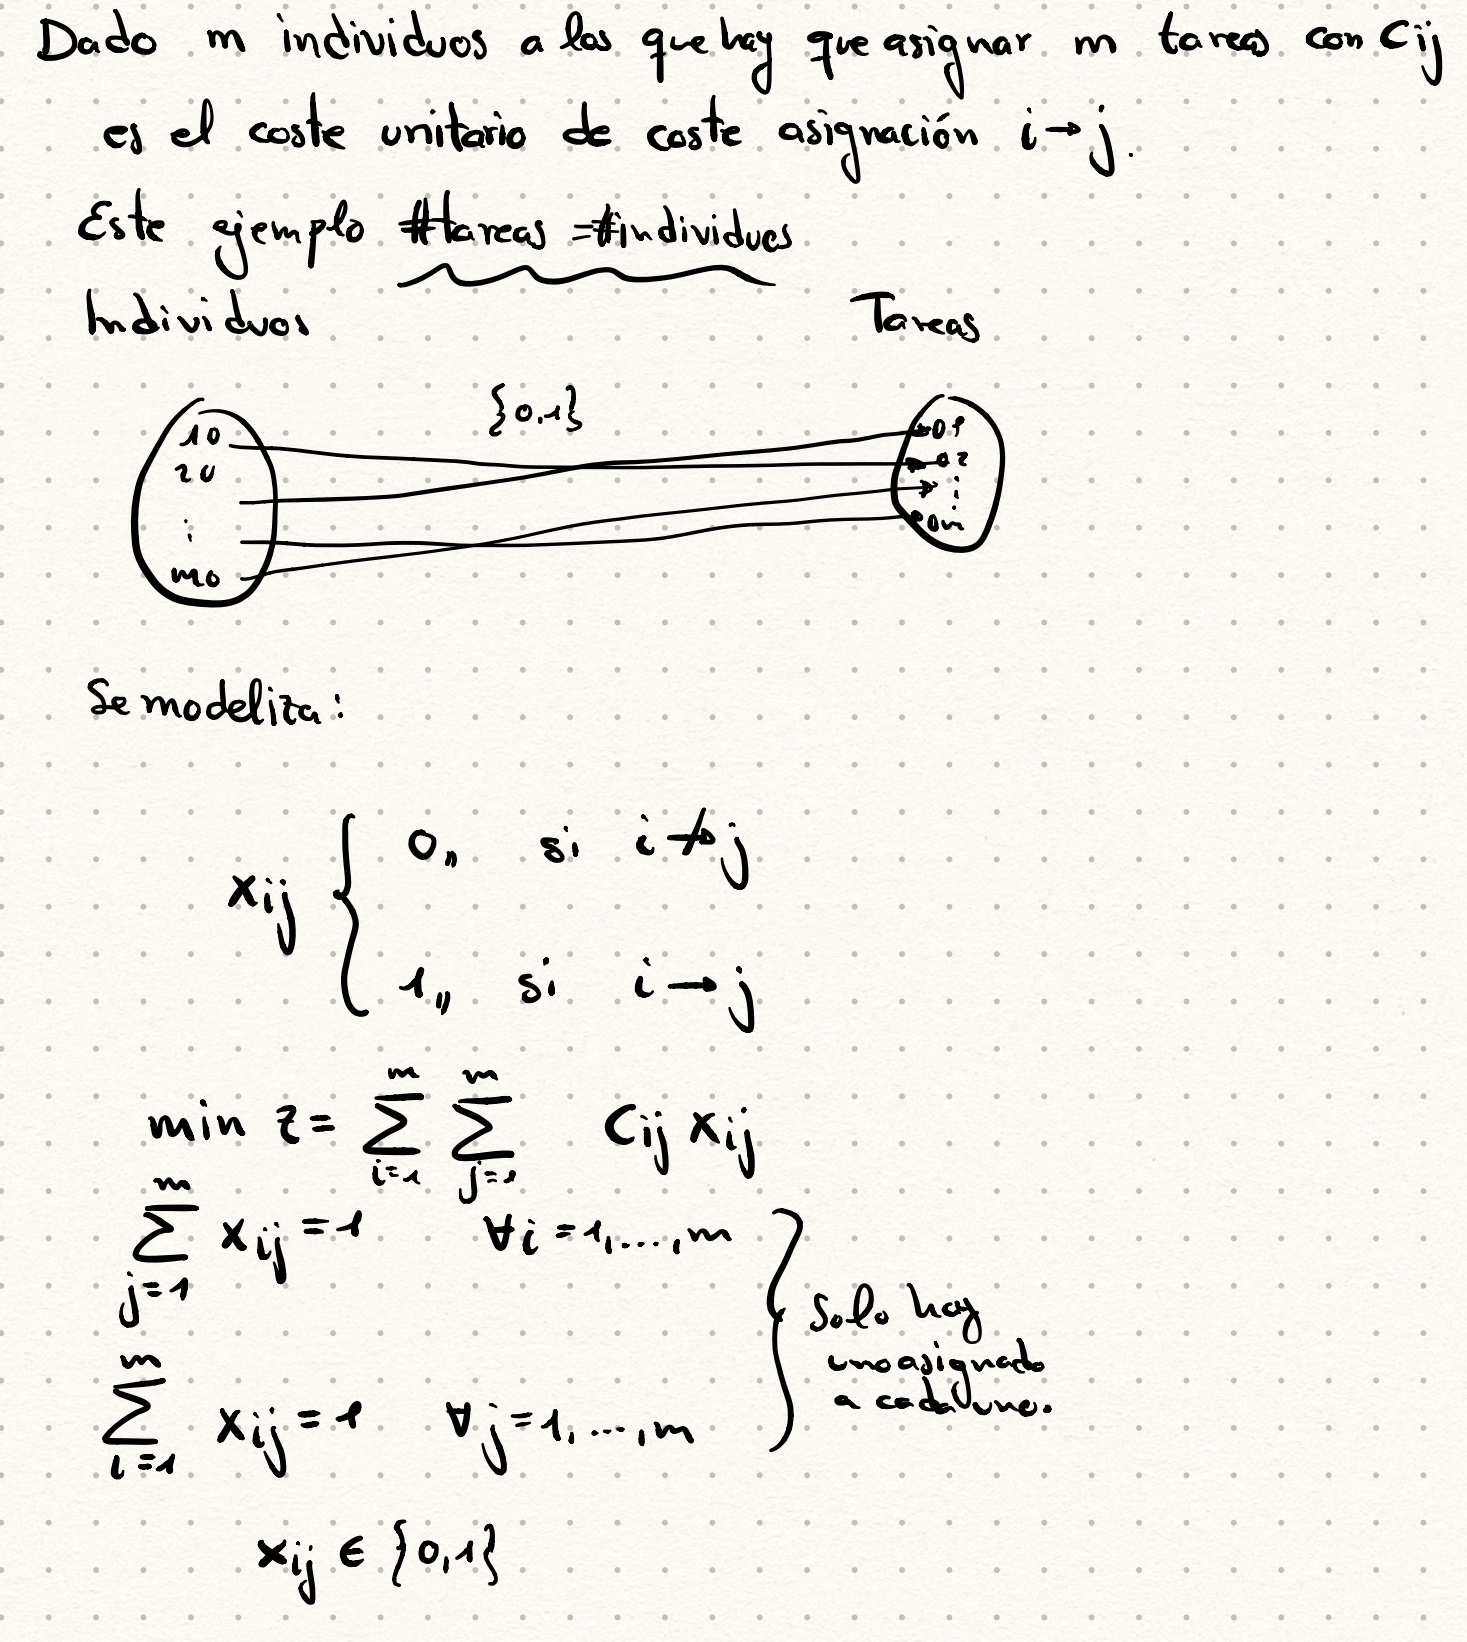 Dado m individuos a los que hay que asignar m tareas con Cij
es el coste unitario de coste asignación i→j.
Este ejemplo #tareas =#individuos
Individuos Tareas
{0,1}
1o o1
2o o2
⋮ ⋮
mo om
Se modeliza:
xij { 0,, si i↛j
1,, si i→j
min z = ∑_{i=1}^{m} ∑_{j=1}^{m} Cij xij
∑_{j=1}^{m} xij = 1 ∀i = 1,...,m
∑_{i=1}^{m} xij = 1 ∀j = 1,...,m
} Solo hay
uno asignado
a cada uno.
xij ∈ {0,1}